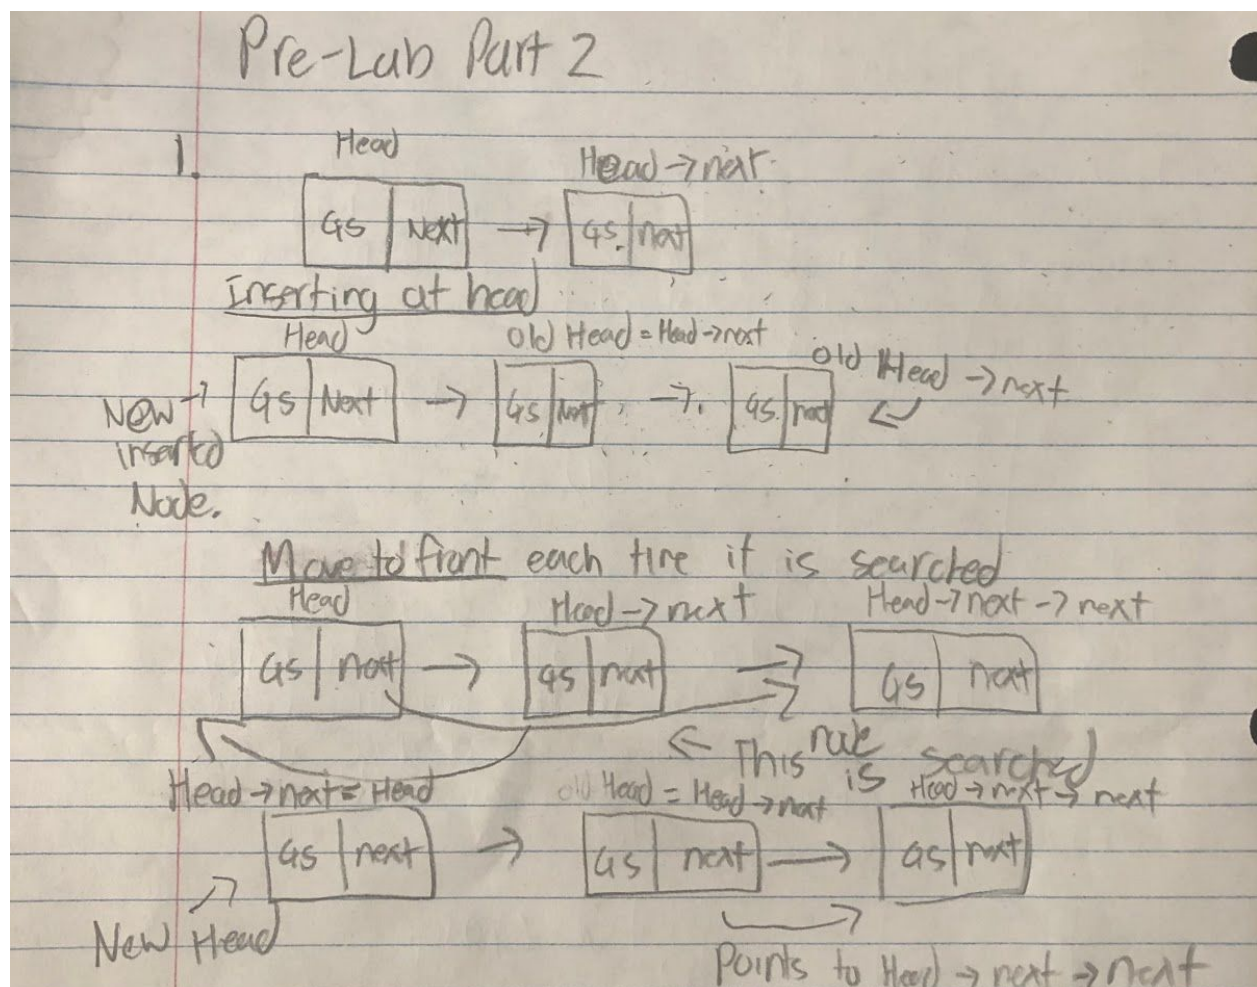 Pre-Lab Part 2
1.
Head
Head → next
GS | Next → GS. | next
Inserting at head
Head
Old Head = Head → next
Old Head → next
New → GS | Next → GS | Next → GS. | next
inserted
Node.
Move to front each time it is searched
Head
Head → next
Head → next → next
GS | next → GS | next → GS | next
← This node is searched
Head → next = Head
old Head = Head → next
Head → next → next
GS | next → GS | next → GS | next
New Head
Points to Head → next → next